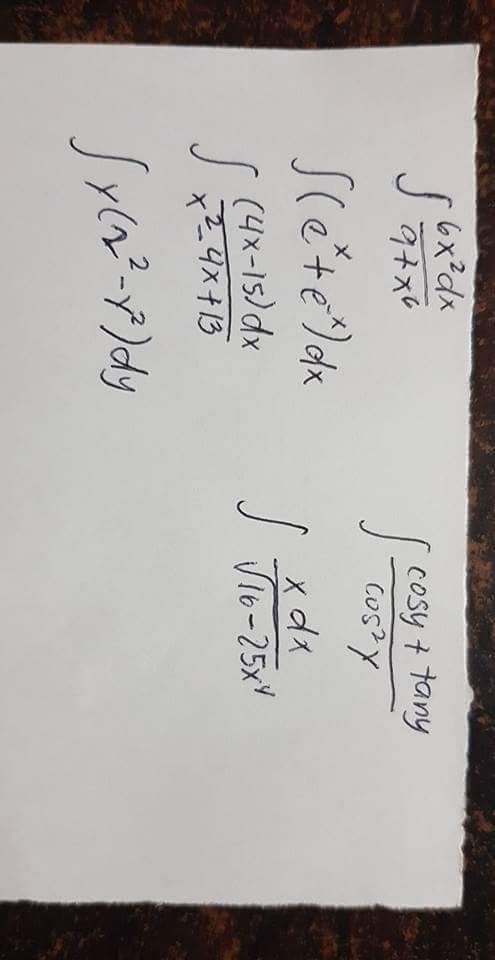 ∫ 6x²dx / 9+x⁶
∫(eˣ+e⁻ˣ)dx
∫ (4x-15)dx / x²-4x+13
∫ y(2²-y²)dy
∫ cosy + tany / cos²y
∫ x dx / √16-25x⁴